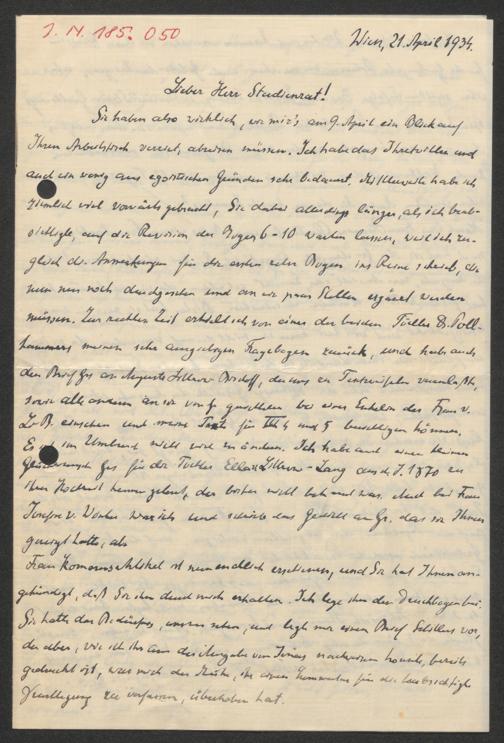 J. N. 185.050
Wien, 21. April 1934.
Lieber Herr Studienrat!
Sie haben also wirklich, wie mir's am 9. April ein Blick auf
Ihren Arbeitstisch verriet, abreisen müssen. Ich habe das Ihretwillen und
auch ein wenig aus egoistischen Gründen sehr bedauert. Mittlerweile habe ich
ziemlich viel vorwärts gebracht, Sie dabei allerdings länger, als ich beab-
sichtigte, auf die Revision der Bogen 6-10 warten lassen, weil ich zu-
gleich die Anmerkungen für die ersten zehn Bogen ins Reine schrieb, die
nun nur noch durchgesehen und an ein paar Stellen ergänzt werden
müssen. Zur rechten Zeit erhielt ich von einer der beiden Töchter Dr. Poll-
hammers meinen sehr ausgiebigen Fragebogen zurück, und habe auch
den Brief Grs an Auguste Littrow-Bischoff, der uns zu Textzweifeln veranlaßte,
sowie alle andern an sie von Gr. gerichteten bei einer Enkelin der Frau v.
L-B. einsehen und meine Text für III 4 und 5 berichtigen können.
Es ist im Umbruch nicht viel zu ändern. Ich habe auch einen kleinen
Glückwunsch Grs für die Tochter Ella Littrow-Lang aus d. J. 1870 zu
ihrer Hochzeit kennen gelernt, der bisher nicht bekannt war. Auch bei Frau
v. war ich und schickte das Gedicht an Gr. das sie Ihnen
gezeigt hatte, ab.
Frau Komorns Artikel ist nun endlich erschienen, und Sie hat Ihnen an-
gekündigt, daß Sie ihn durch mich erhalten. Ich lege ihn der Druckbogen bei.
Sie hatte das Bedürfnis, uns zu sehen, und legte mir einen Brief Schillers vor,
der aber, wie ich ihr aus der Ausgabe von Jonas nachweisen konnte, bereits
gedruckt ist, was mich der Mühe, ihr einen Kommentar für die beabsichtigte
zu verfassen, überhoben hat.